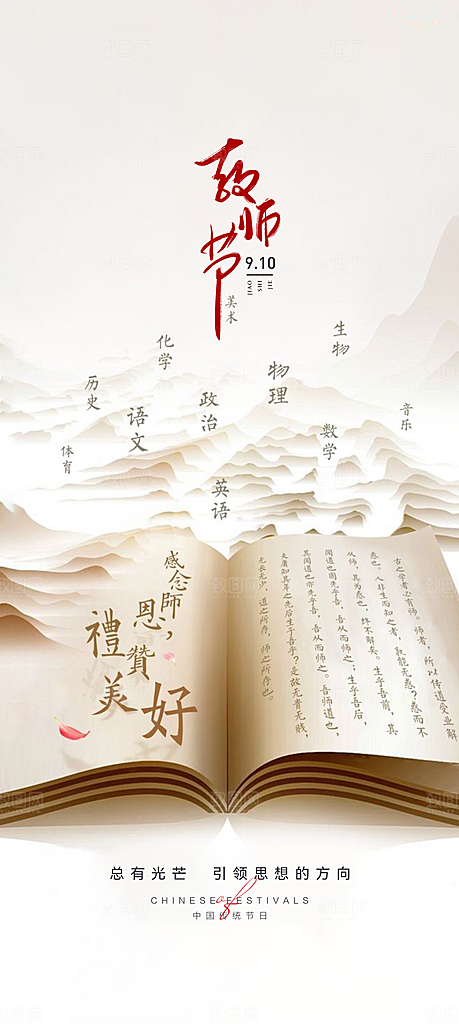 教师节
9.10
JIAO
SHI
JIE
美术
生物
化学
物理
历史
政治
语文
音乐
数学
体育
英语
感念師恩，
禮贊
美好
古之学者必有师。师者，所以传道受业解
惑也。人非生而知之者，孰能无惑？惑而不
从师，其为惑也，终不解矣。生乎吾前，其
闻道也固先乎吾，吾从而师之；生乎吾后，
其闻道也亦先乎吾，吾从而师之。吾师道也，
夫庸知其年之先后生于吾乎？是故无贵无贱，
无长无少，道之所存，师之所存也。
总有光芒 引领思想的方向
CHINESE of FESTIVALS
中国传统节日